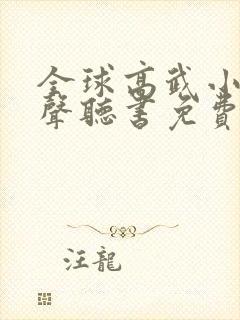 全球高武小
聲聽書免費
汪龍